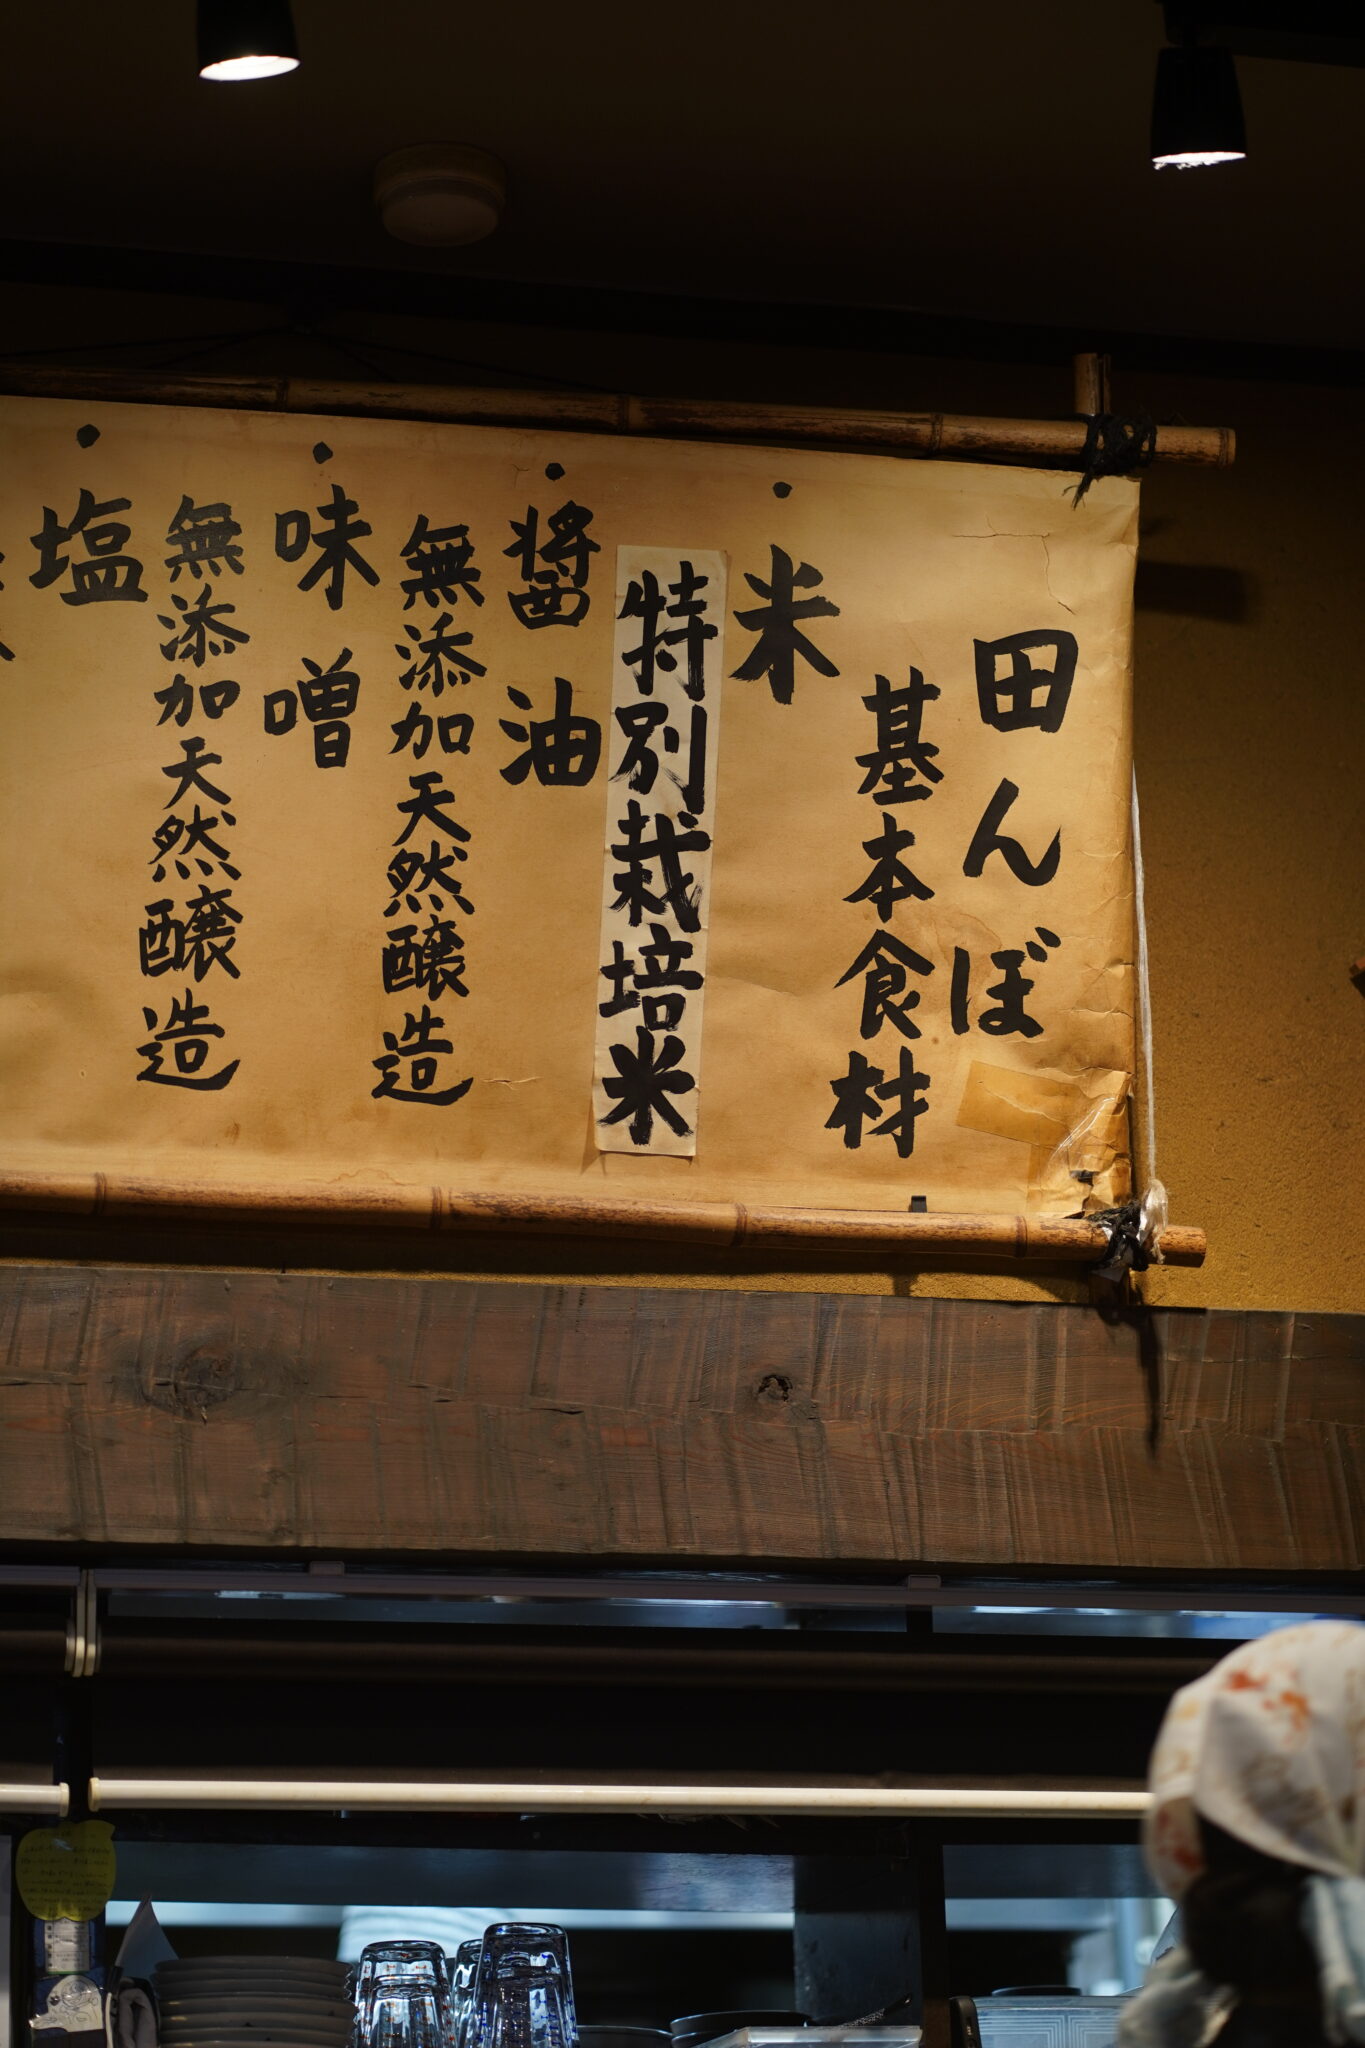 田んぼ
基本食材
・米
特別栽培米
・醤油
無添加天然醸造
・味噌
無添加天然醸造
・塩